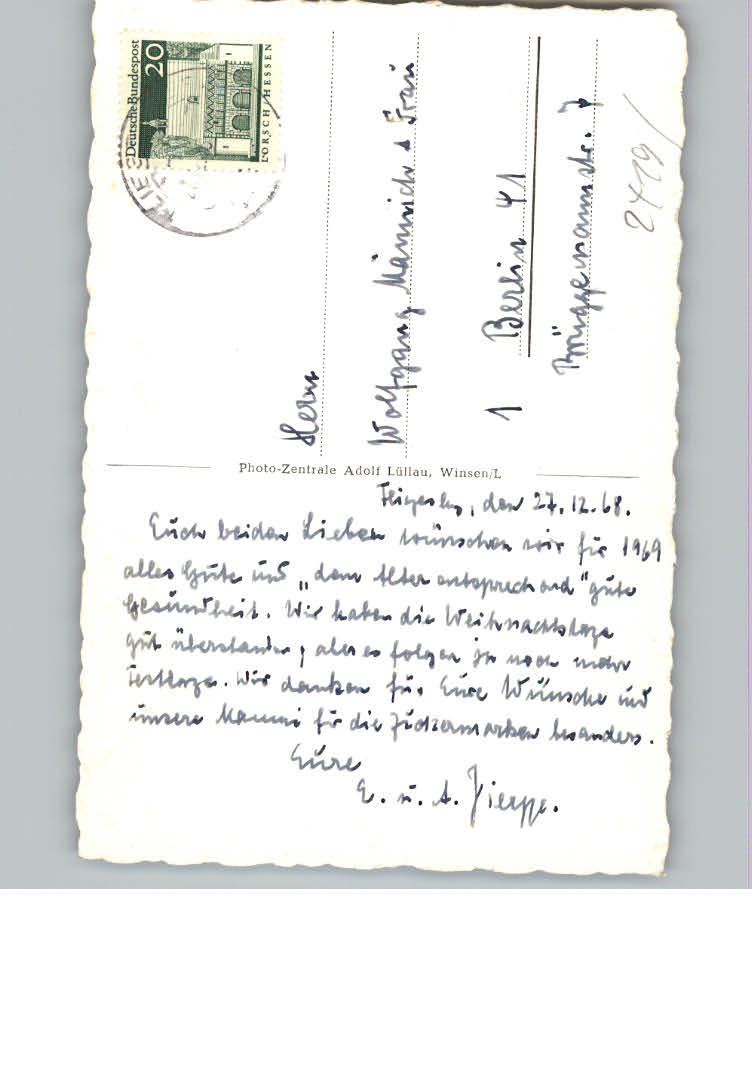 Deutsche Bundespost
20
LORSCH HESSEN
FLIE
Herrn
Wolfgang Männich & Frau
1 Berlin 41
Brüggemannstr. 7
2419/
Photo-Zentrale Adolf Lüllau, Winsen/L
den 27.12.68.
Euch beiden Lieben wünschen wir für 1969
alles Gute und „dem Alter entsprechend" gute
Gesundheit. Wir haben die Weihnachtstage
gut überstanden, aber es folgen ja noch mehr
Festtage. Wir danken für Eure Wünsche und
unsere Mammi für die Zuckermarken besonders.
Eure
E. u. A.